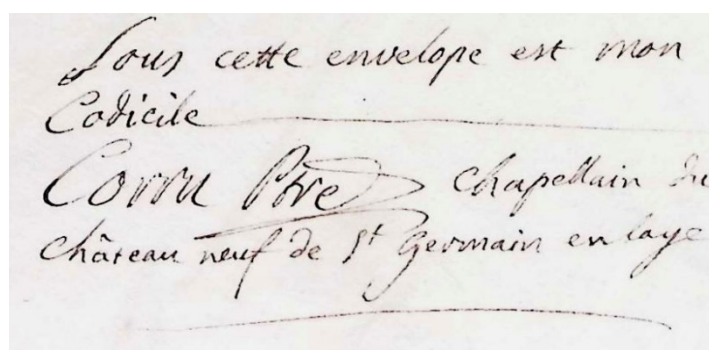 Sous cette envelope est mon
Codicile
Cornu Ptre chapellain du
château neuf de St Germain en laye